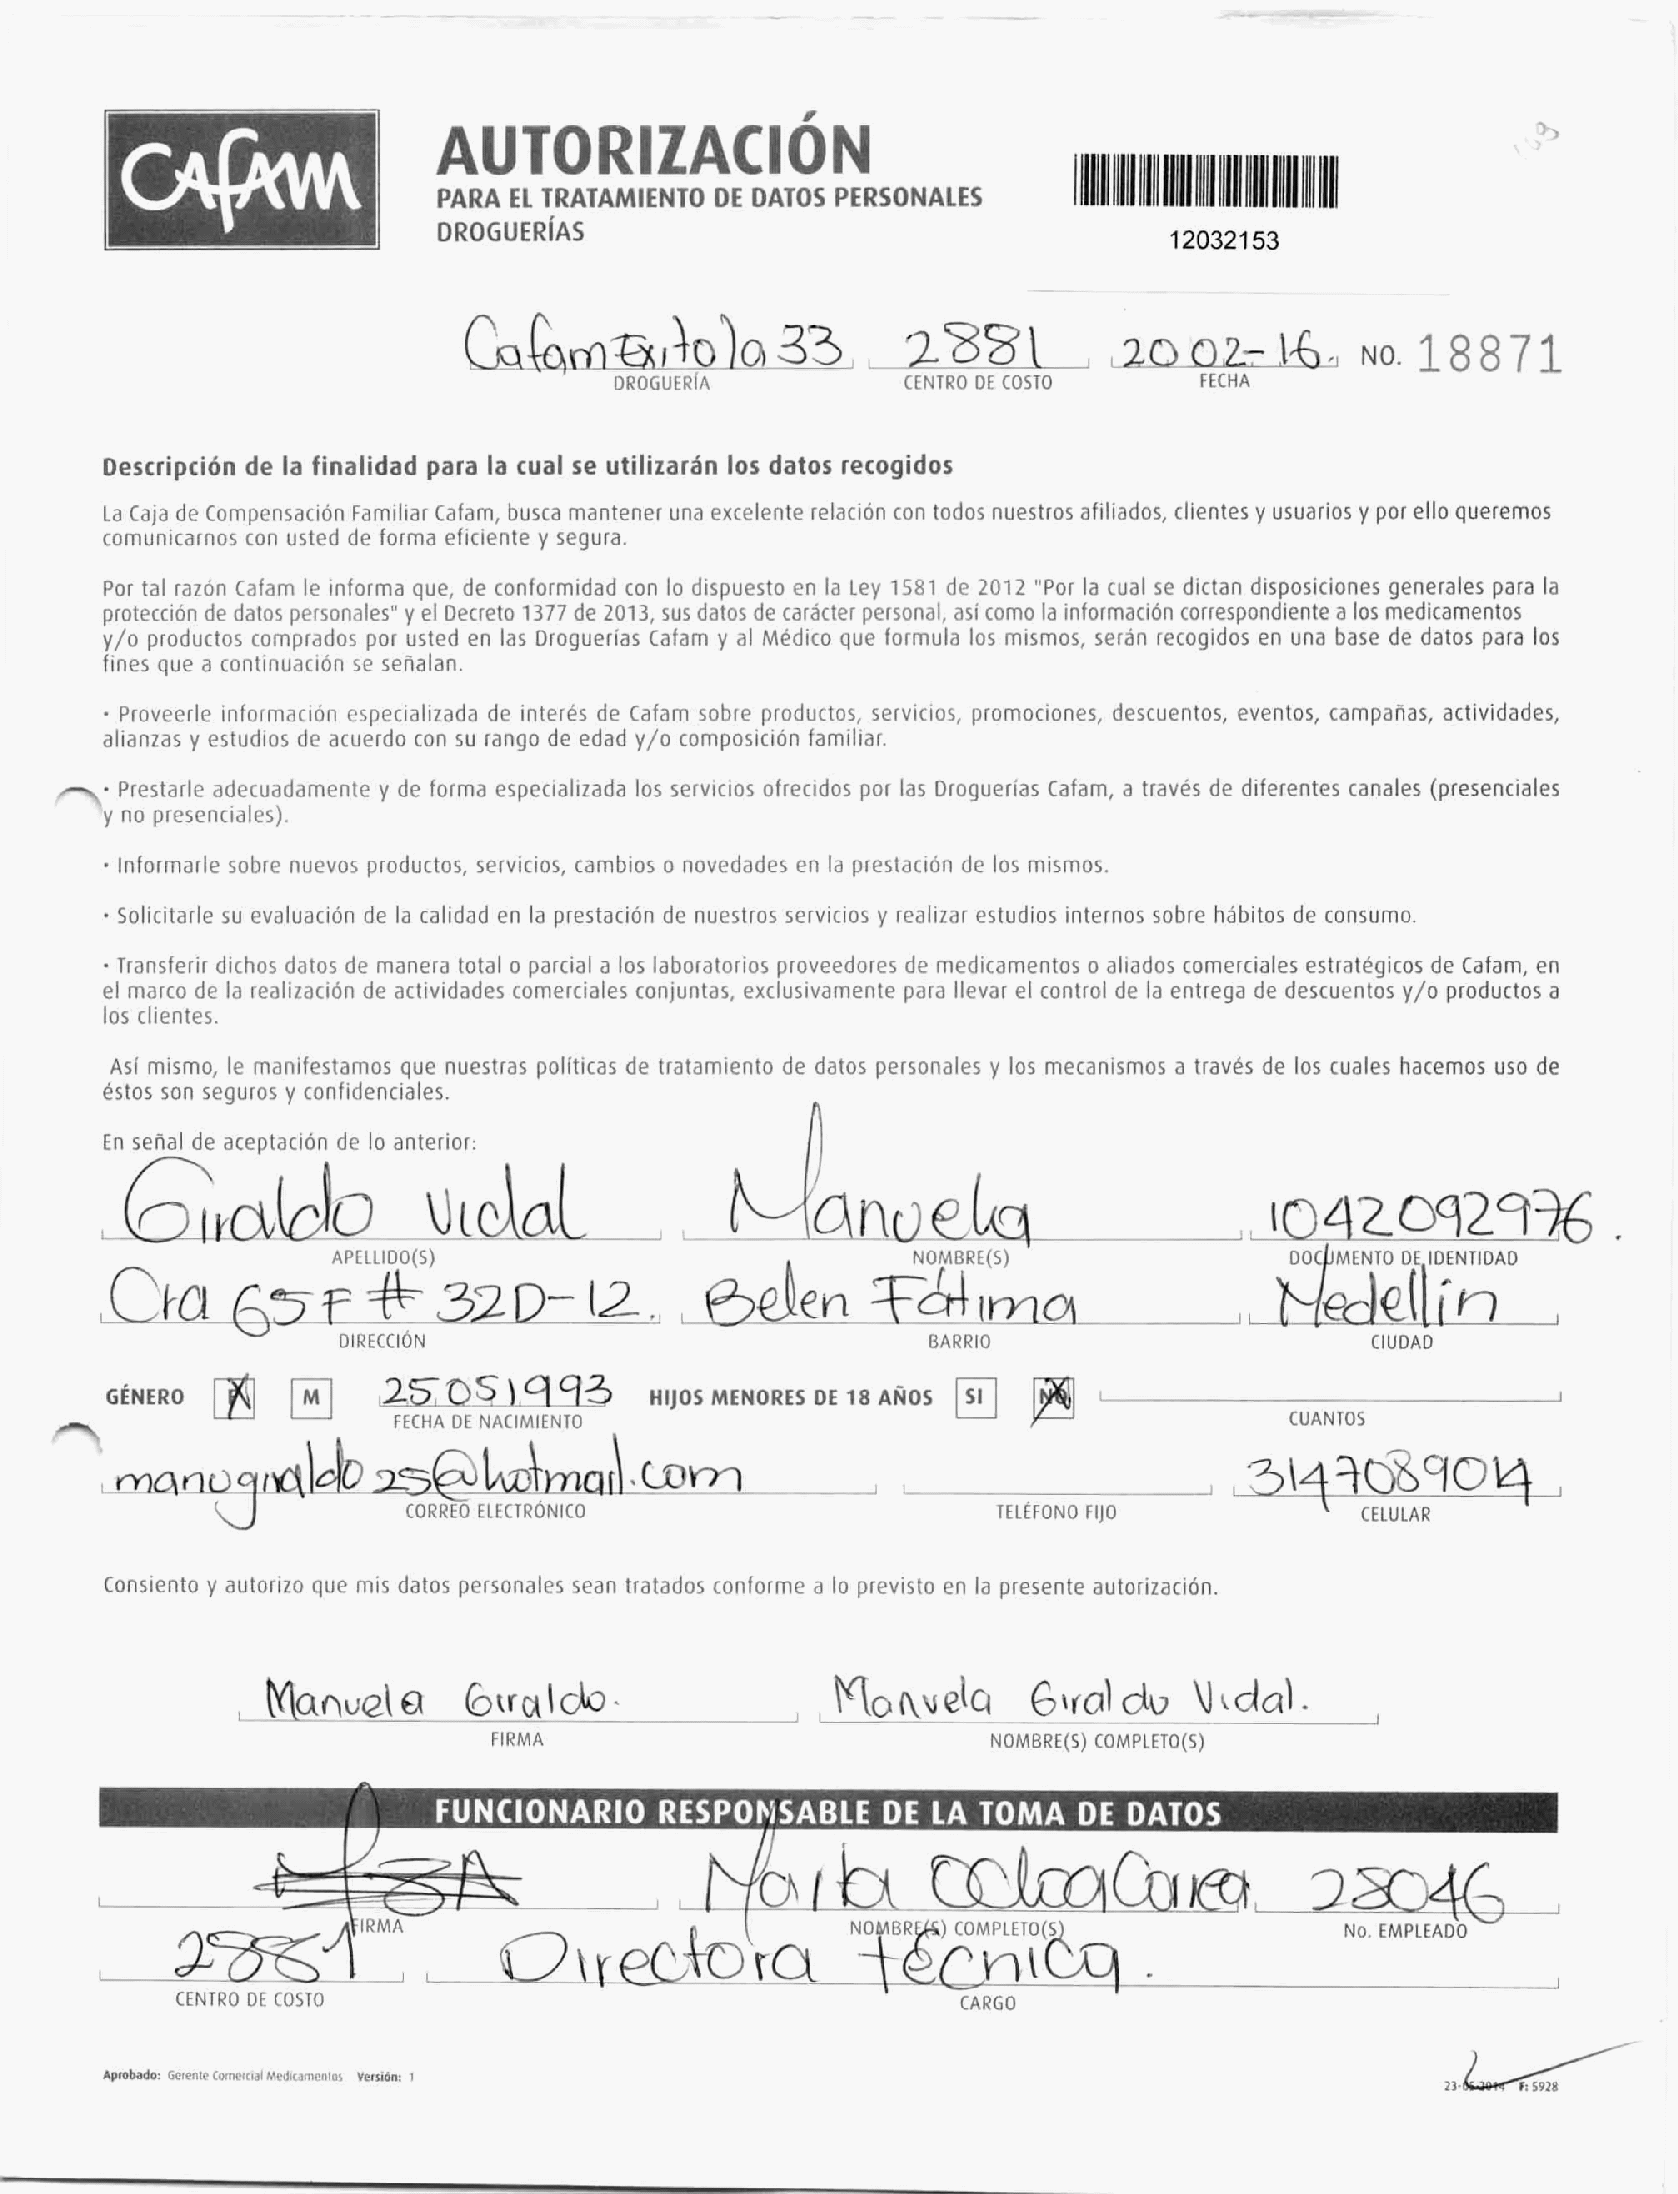 CAFAM
AUTORIZACIÓN
PARA EL TRATAMIENTO DE DATOS PERSONALES
DROGUERÍAS
12032153
Cafam Exito la 33 2881 20 02-16. NO. 18871
DROGUERÍA CENTRO DE COSTO FECHA
Descripción de la finalidad para la cual se utilizarán los datos recogidos
La Caja de Compensación Familiar Cafam, busca mantener una excelente relación con todos nuestros afiliados, clientes y usuarios y por ello queremos
comunicarnos con usted de forma eficiente y segura.
Por tal razón Cafam le informa que, de conformidad con lo dispuesto en la Ley 1581 de 2012 "Por la cual se dictan disposiciones generales para la
protección de datos personales" y el Decreto 1377 de 2013, sus datos de carácter personal, así como la información correspondiente a los medicamentos
y/o productos comprados por usted en las Droguerías Cafam y al Médico que formula los mismos, serán recogidos en una base de datos para los
fines que a continuación se señalan.
· Proveerle información especializada de interés de Cafam sobre productos, servicios, promociones, descuentos, eventos, campañas, actividades,
alianzas y estudios de acuerdo con su rango de edad y/o composición familiar.
· Prestarle adecuadamente y de forma especializada los servicios ofrecidos por las Droguerías Cafam, a través de diferentes canales (presenciales
y no presenciales).
· Informarle sobre nuevos productos, servicios, cambios o novedades en la prestación de los mismos.
· Solicitarle su evaluación de la calidad en la prestación de nuestros servicios y realizar estudios internos sobre hábitos de consumo.
· Transferir dichos datos de manera total o parcial a los laboratorios proveedores de medicamentos o aliados comerciales estratégicos de Cafam, en
el marco de la realización de actividades comerciales conjuntas, exclusivamente para llevar el control de la entrega de descuentos y/o productos a
los clientes.
Así mismo, le manifestamos que nuestras políticas de tratamiento de datos personales y los mecanismos a través de los cuales hacemos uso de
éstos son seguros y confidenciales.
En señal de aceptación de lo anterior:
Giraldo Vidal Manuela 1042092976.
APELLIDO(S) NOMBRE(S) DOCUMENTO DE IDENTIDAD
Cra 65F # 32D-12. Belen Fátima Medellín
DIRECCIÓN BARRIO CIUDAD
GÉNERO F M 25051993 HIJOS MENORES DE 18 AÑOS SI NO
FECHA DE NACIMIENTO CUANTOS
manugiraldo25@hotmail.com 3147089014
CORREO ELECTRÓNICO TELÉFONO FIJO CELULAR
Consiento y autorizo que mis datos personales sean tratados conforme a lo previsto en la presente autorización.
Manuela Giraldo. Manuela Giraldo Vidal.
FIRMA NOMBRE(S) COMPLETO(S)
FUNCIONARIO RESPONSABLE DE LA TOMA DE DATOS
Marta Ochoa Correa 28046
FIRMA NOMBRE(S) COMPLETO(S) No. EMPLEADO
2881 Directora técnica.
CENTRO DE COSTO CARGO
Aprobado: Gerente Comercial Medicamentos Versión: 1
F: 5928